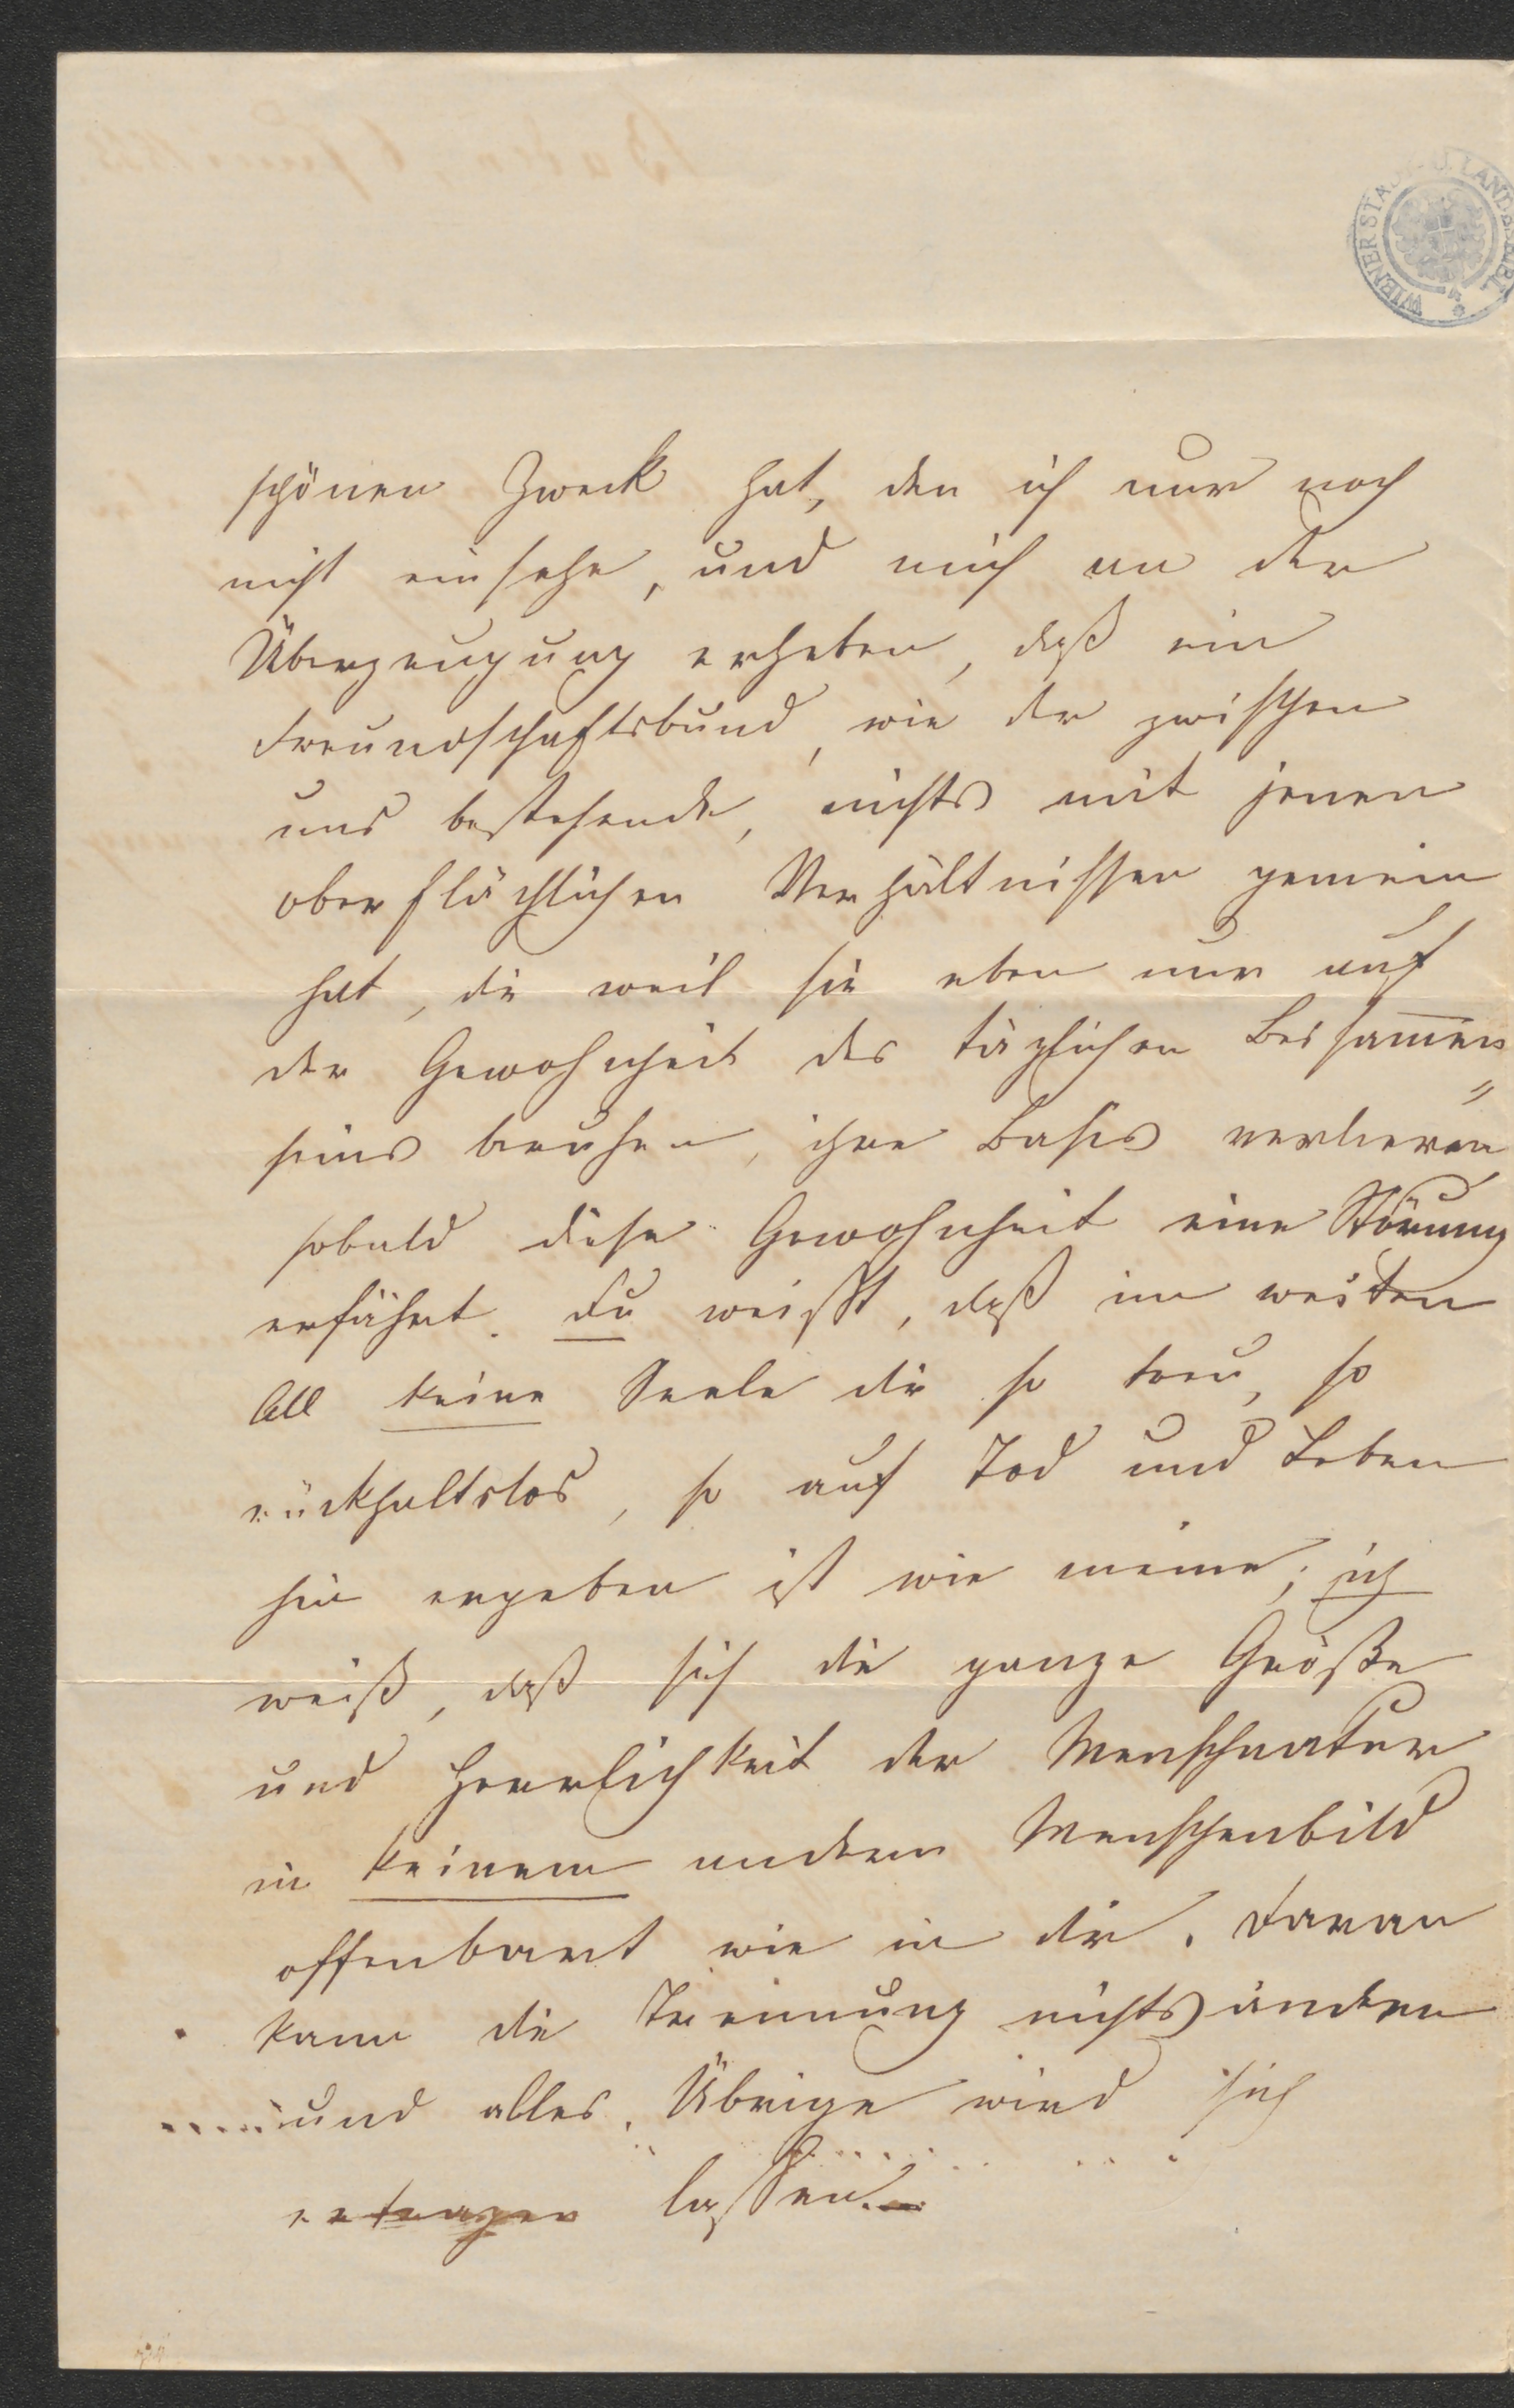 WIENER STADT U. LANDESBIBL.
schönen Zweck hat, den ich nur noch
nicht einsehe, und mich an der
Überzeugung erheben, daß ein
Freundschaftsbund, wie der zwischen
uns bestehende, nichts mit jenen
oberflächlichen Verhältnissen gemein
hat, die weil sie eben nur auf
der Gewohnheit des täglichen Beisam̅en=
seins beruhen, ihre Basis verlieren
sobald diese Gewohnheit eine Störung
erfährt. Du weißt, daß im weiten
All keine Seele dir so treu, so
rückhaltslos, so auf Tod und Leben
hin ergeben ist wie meine; ich
weiß, daß sich die ganze Größe
und Herrlichkeit der Menschnatur
in keinem andern Menschenbild
offenbart wie in dir. Daran
kann die Trennung nichts ändern
und alles Übrige wird sich
ertragen lassen. –